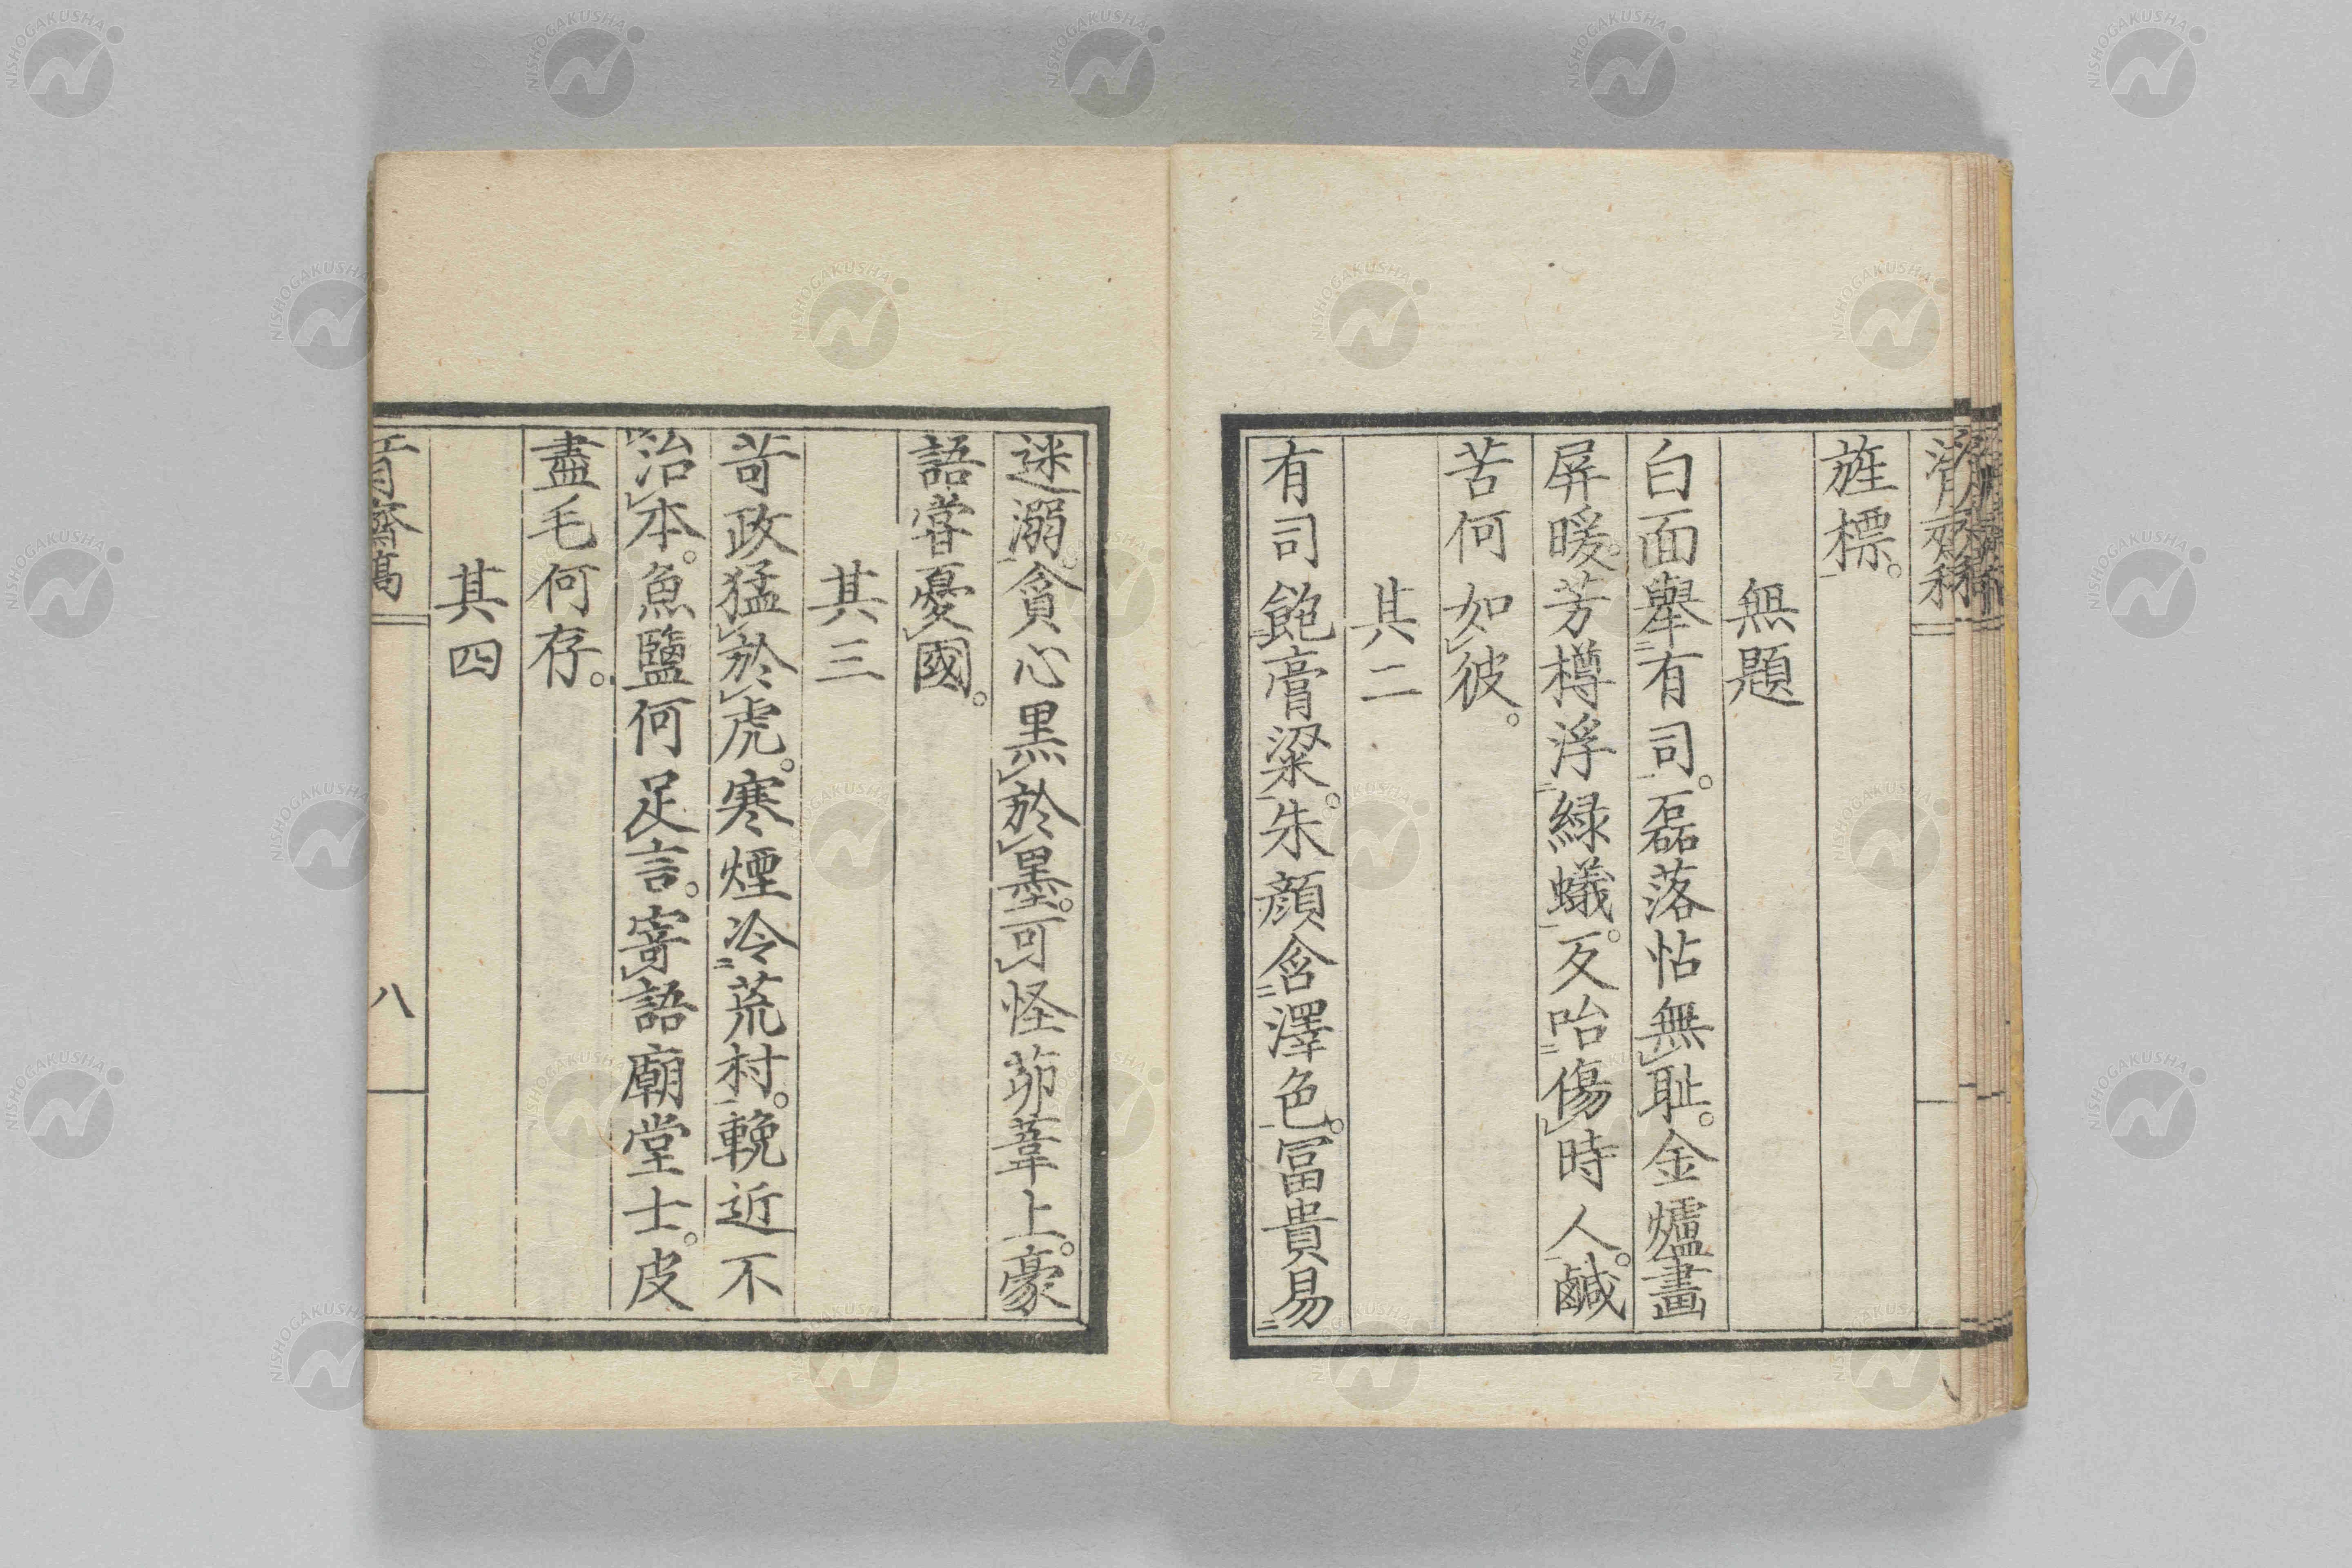 旌標。
無題
白面舉有司。磊落怗無耻。金爐畫
屏暖。芳樽浮綠蟻。歹咍傷時人。鹹
苦何如彼。
其二
有司飽膏粱。朱顏含澤色。冨貴易
迷溺。貪心黒於墨。可怪茆葦上。豪
語嘗憂國。
其三
苛政猛於虎。寒煙冷荒村。輓近不
治本。魚鹽何足言。寄語廟堂士。皮
盡毛何存。
其四
八
NISHOGAKUSHA